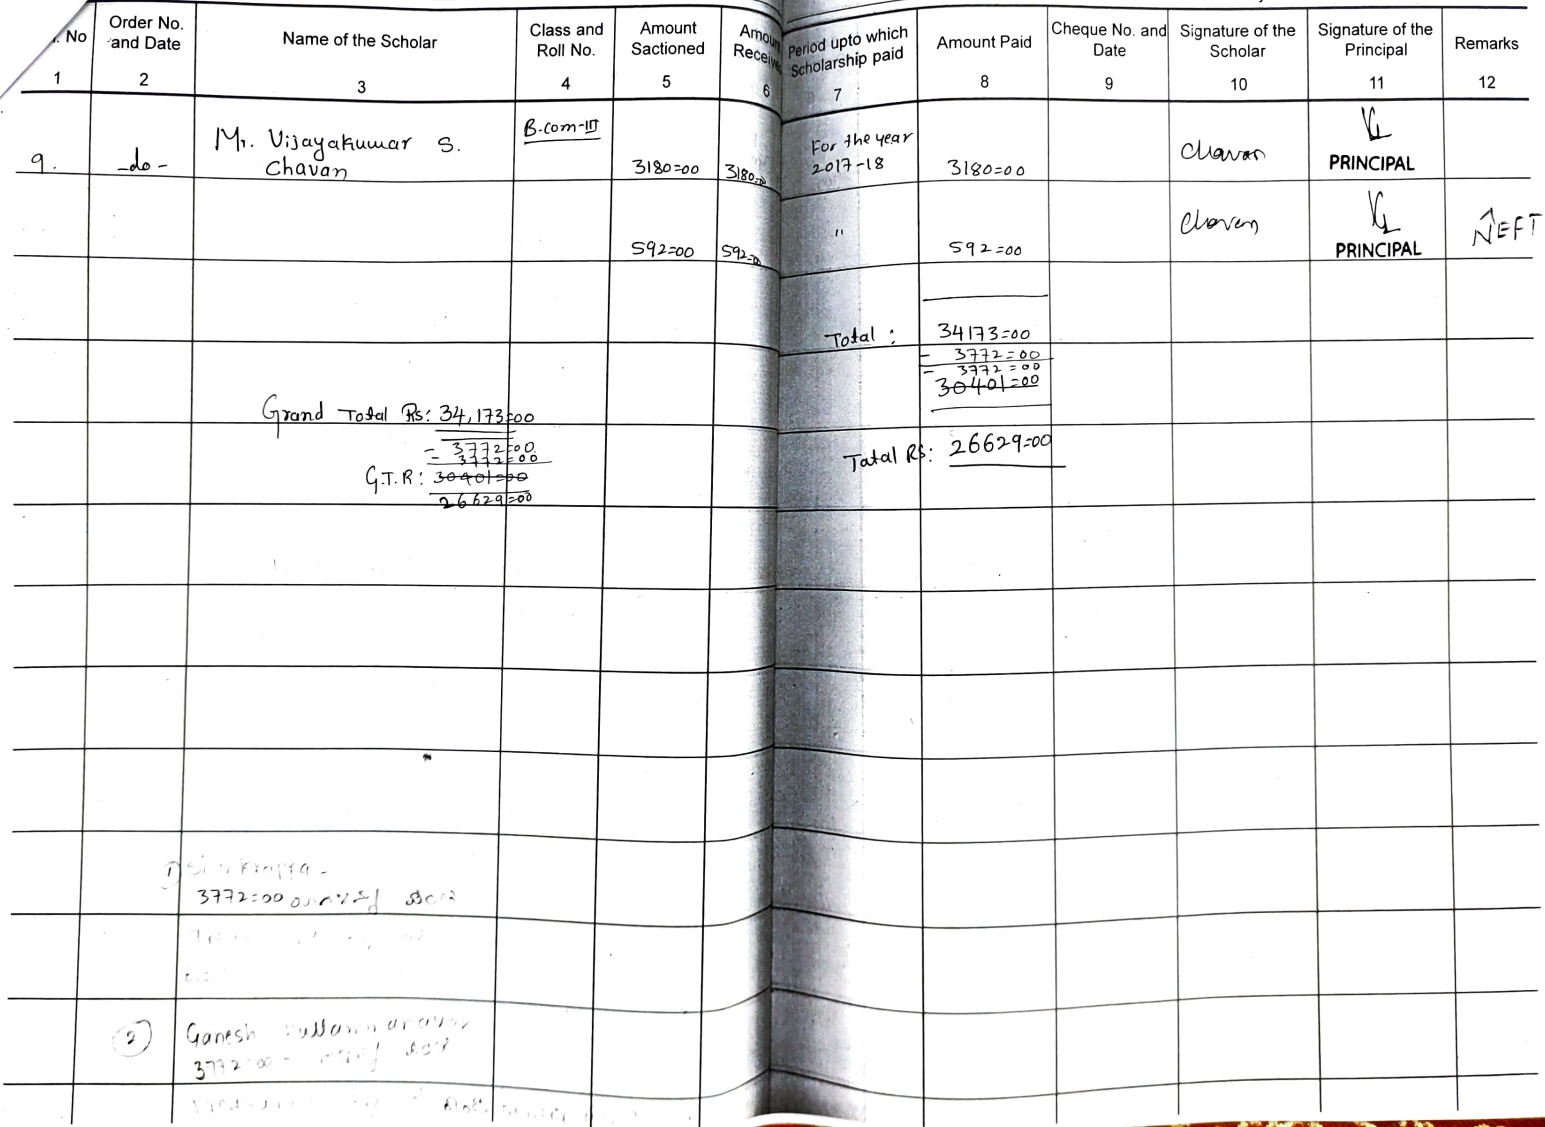 No
Order No. and Date
Name of the Scholar
Class and Roll No.
Amount Sactioned
Period upto which Scholarship paid
Amount Paid
Cheque No. and Date
Signature of the Scholar
Signature of the Principal
Remarks
1 2 3 4 5 6 7 8 9 10 11 12
9. -do- Mr. Vijayakumar S. Chavan B.com-III 3180=00 3180=00 For the year 2017-18 3180=00 Chavan PRINCIPAL
592=00 592=00 " 592=00 Chavan PRINCIPAL NEFT
Total : 34173=00
- 3772=00
- 3772=00
30401=00
Grand Total Rs: 34,173=00
- 3772=00
- 3772=00
G.T.R: 30401=00
26629=00
Tatal Rs: 26629=00
1)
3772=00
2 Ganesh
3772=00